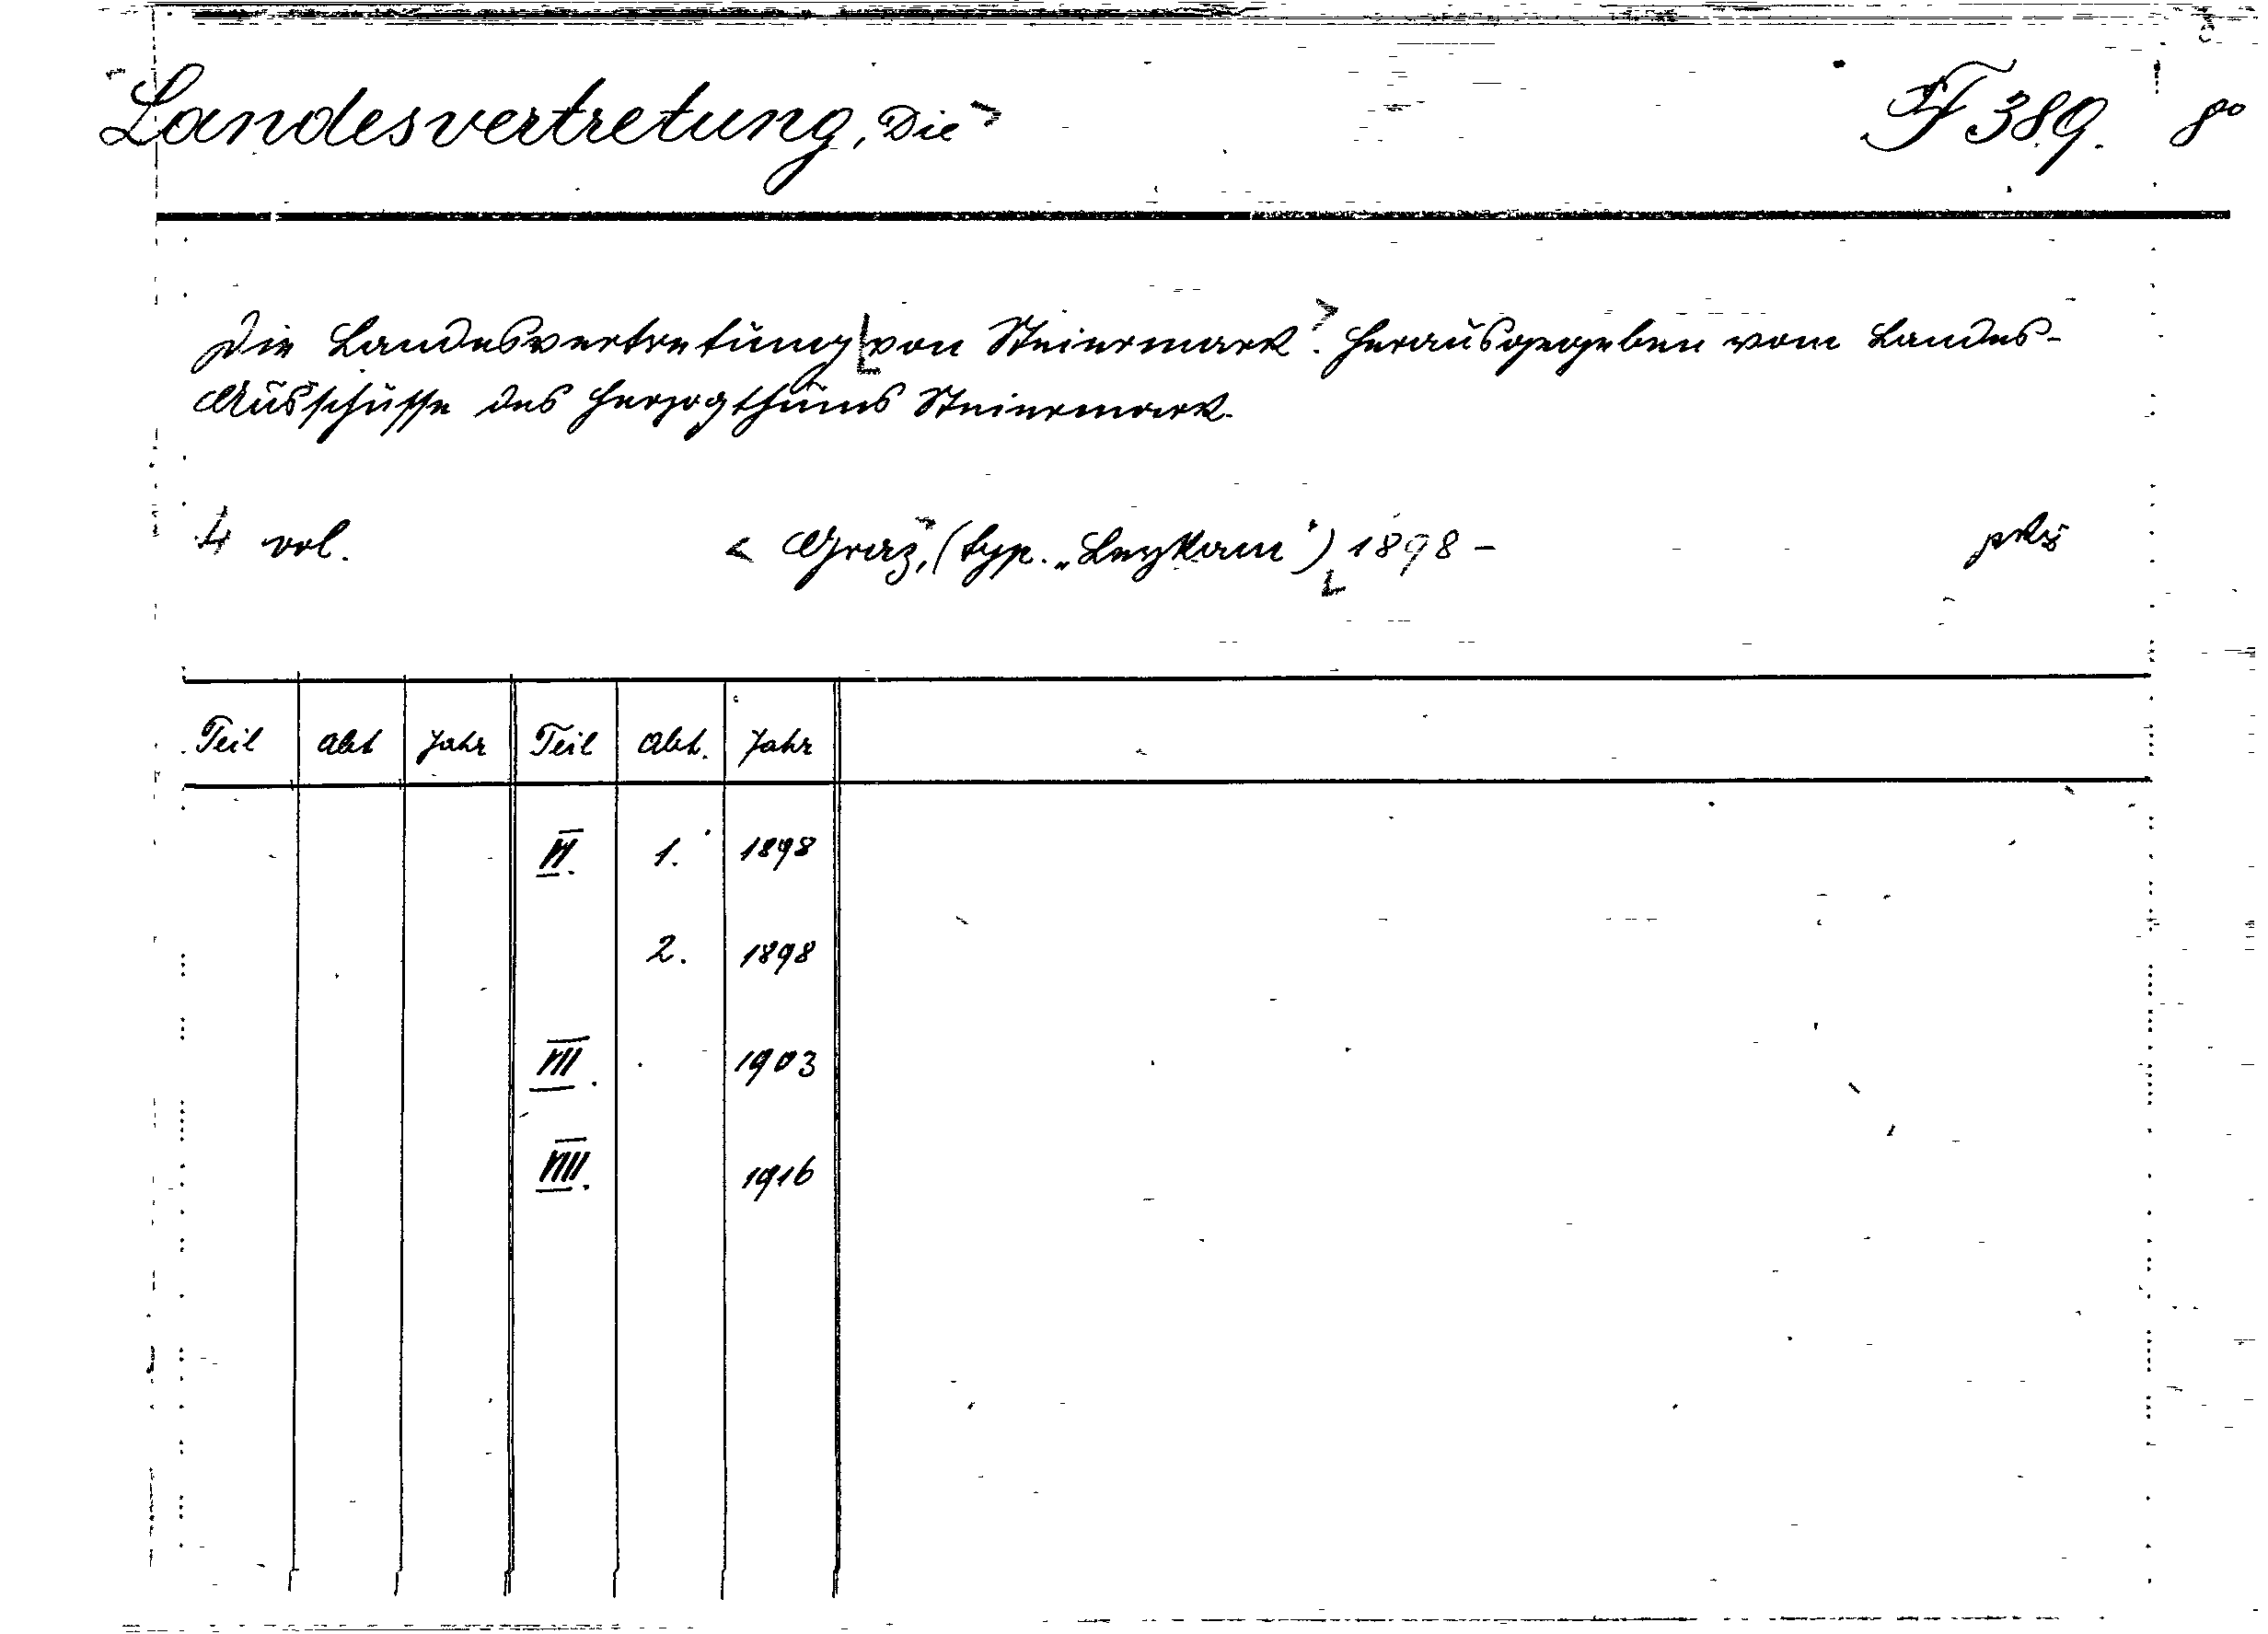 Landesvertretung, Die> F 389. 8°
Die Landesvertretung von Steiermark. Herausgegeben vom Landes-
Ausschusse des Herzogthums Steiermark.
4 vol. < Graz, (typ. „Leykam") 1898 –
Teil Abt Jahr Teil Abt. Jahr
VI. 1. 1898
2. 1898
VII. 1903
VIII. 1916